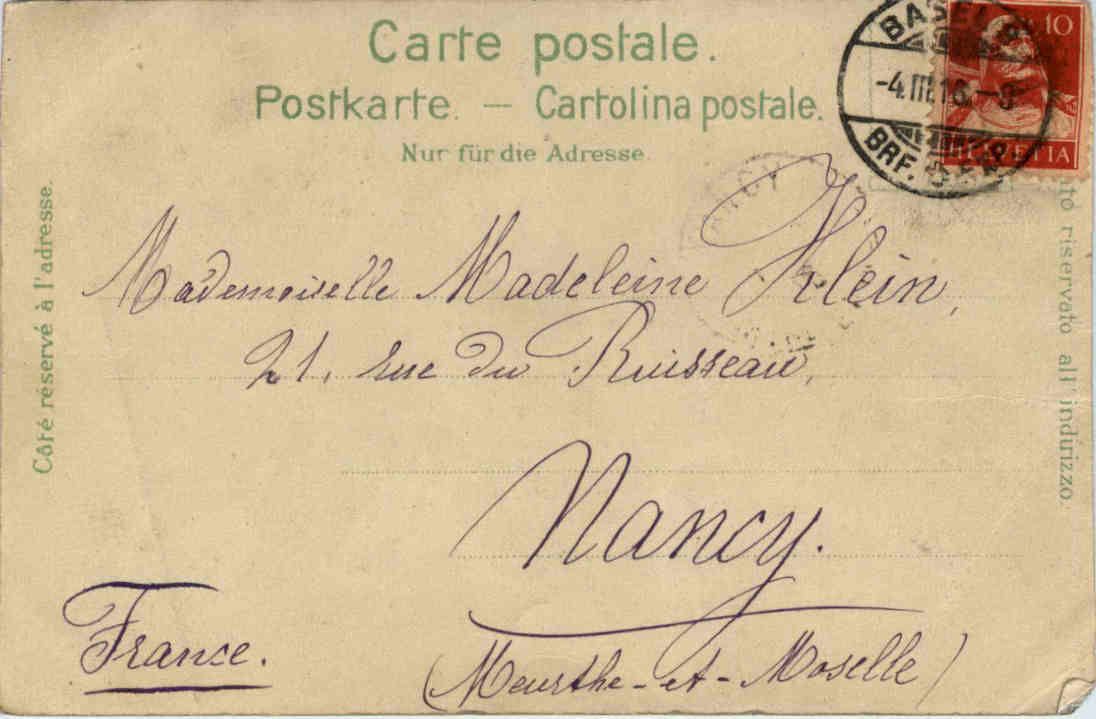 Carte postale.
Postkarte. — Cartolina postale.
Nur für die Adresse.
BASEL
-4.III.16.-9
BRF. EXP.
10
HELVETIA
NANCY
Côté réservé à l'adresse.
riservato all' indirizzo.
Mademoiselle Madeleine Klein,
21, rue du Ruisseau,
Nancy.
France.
(Meurthe-et-Moselle)